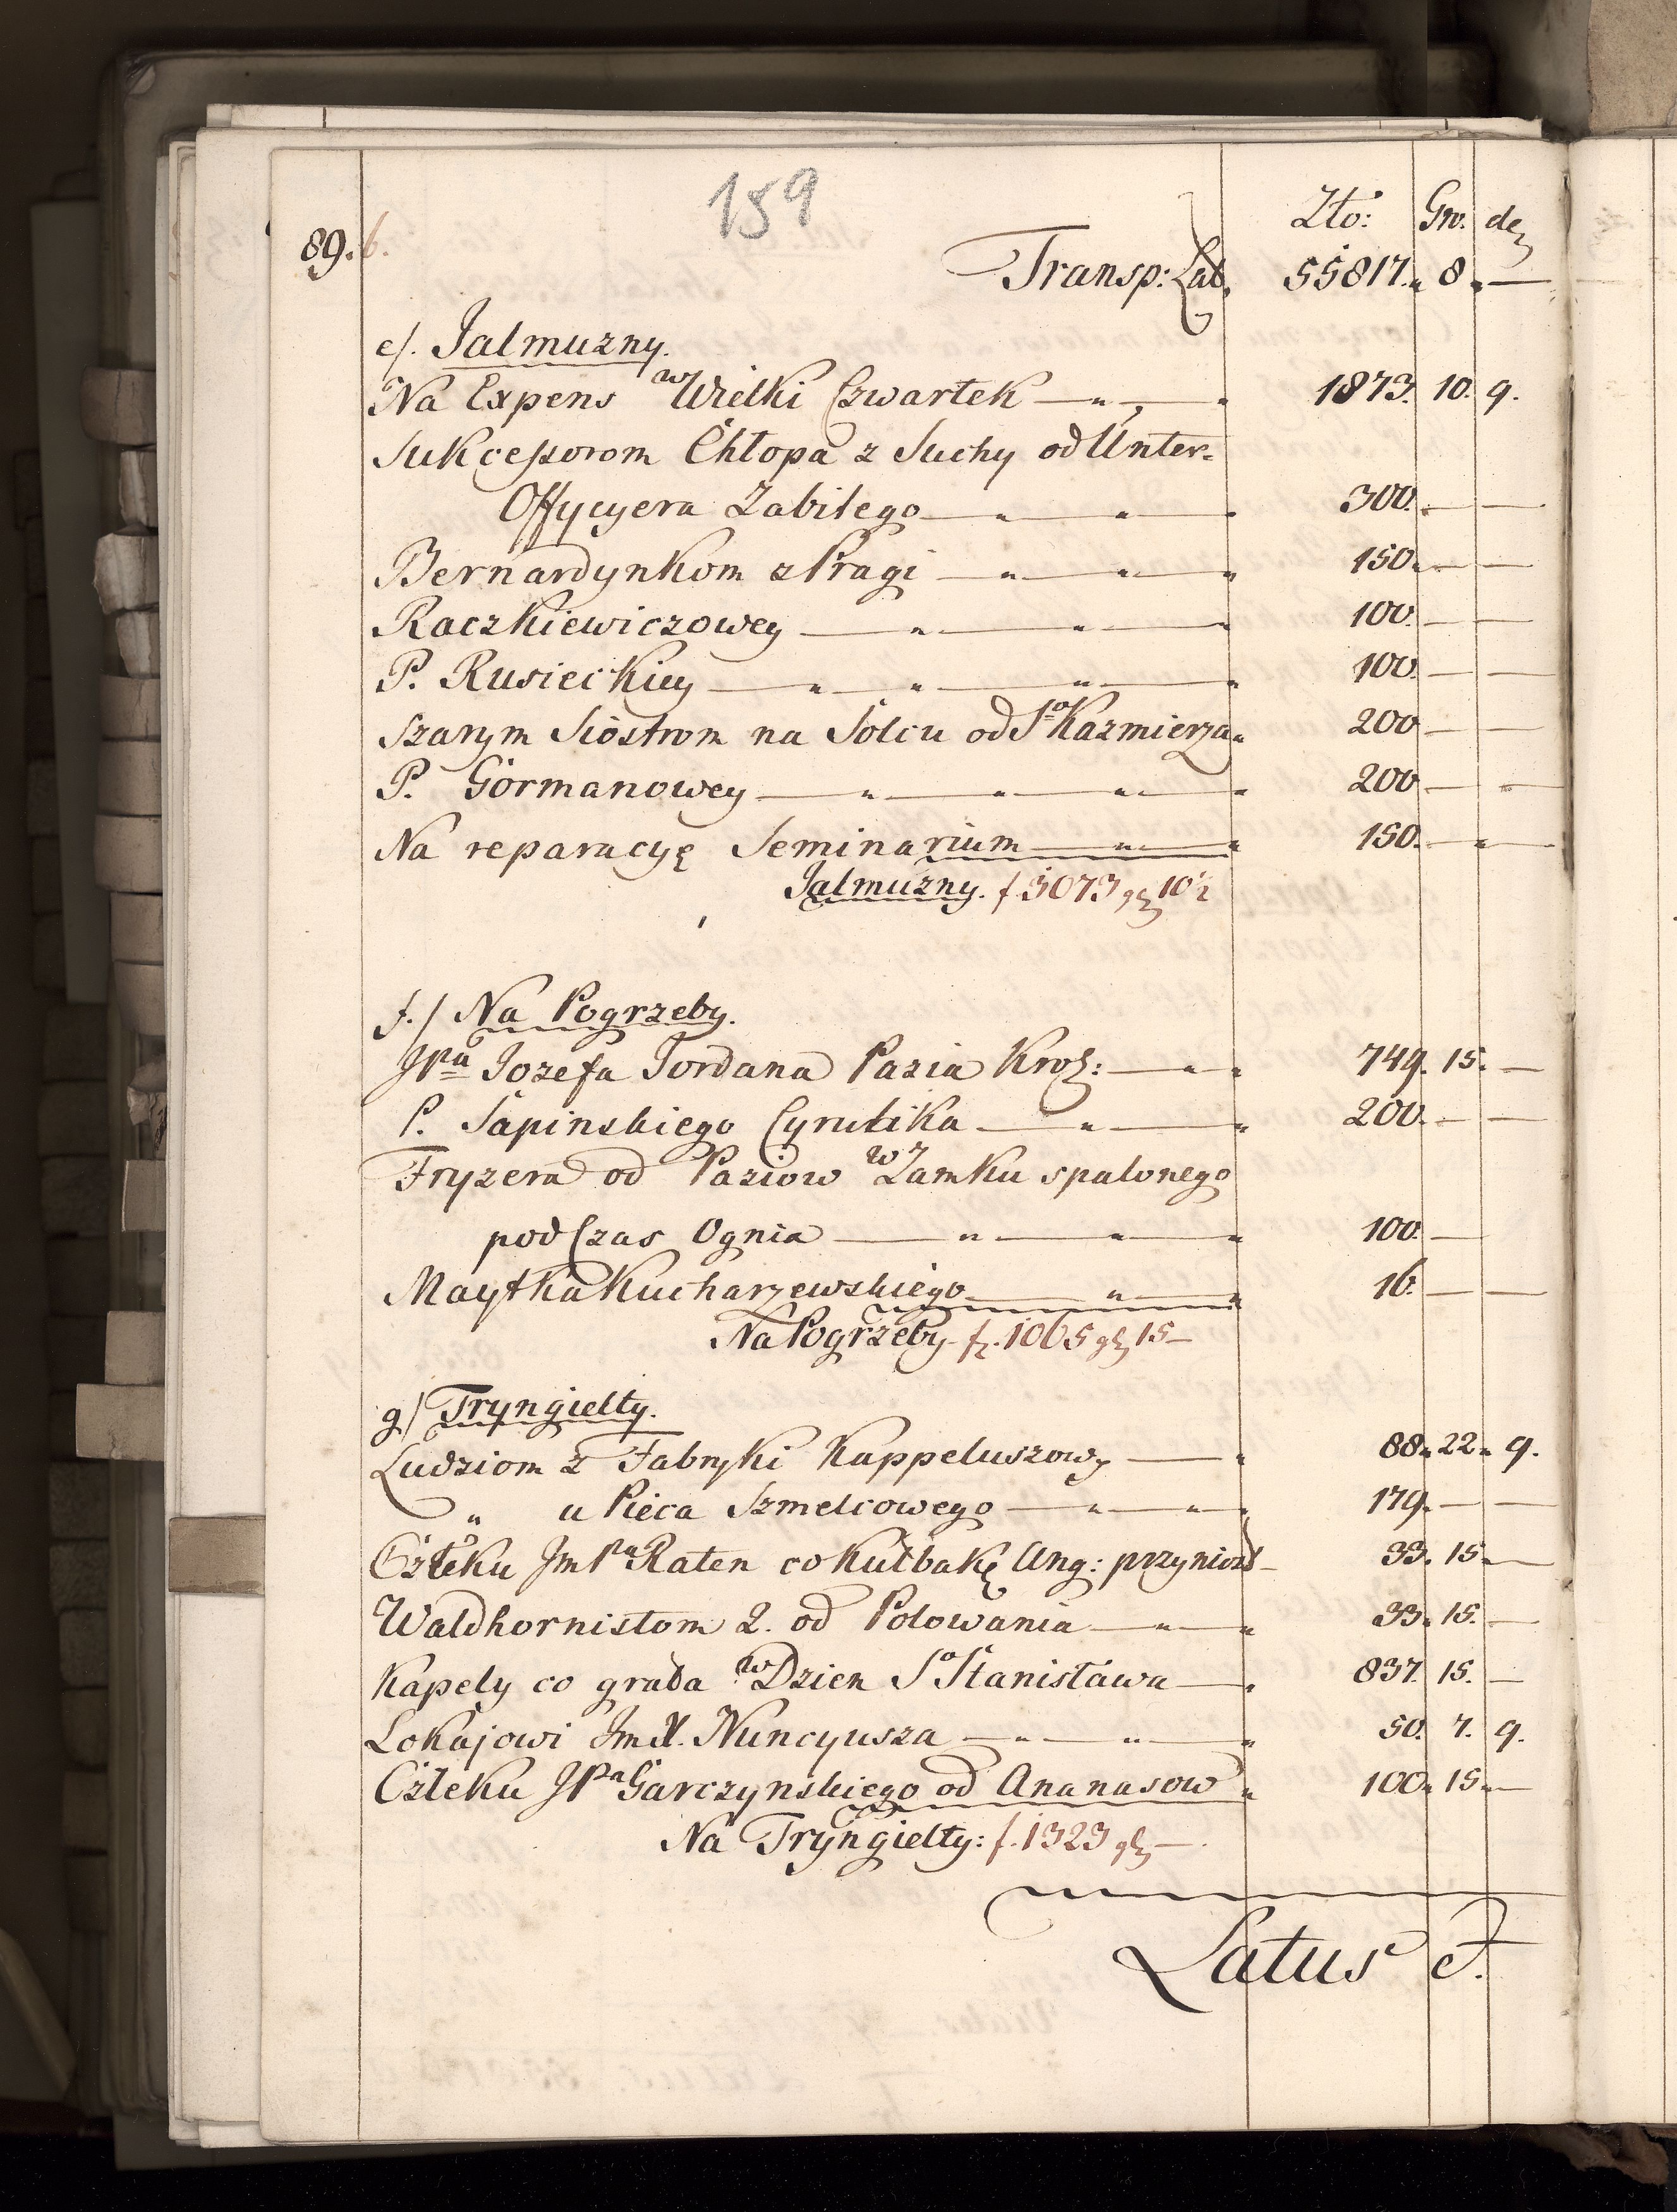 159
Zło: Gro. den
89. b.
Transp: Lat. 55817. 8. —
e/. Jalmuzny.
Na Expens w Wielki Czwartek — 1873. 10. 9.
Sukcessorom Chłopa z Suchy od Unter-
Offycyera Zabitego — 300. — —
Bernardynkom z Pragi — 150. — —
Raczkiewiczowey — 100. — —
P. Rusieckiey — 100. — —
Szarym Siostrom na Solcu od Sgo Kazmierza 200 — —
P. Görmanowey — 200 — —
Na reparacyę Seminarium — 150. — —
Jalmuzny. f 3073 gr 10 1/2
f./ Na Pogrzeby.
JPa Jozefa Jordana Pazia Krol: — 749. 15. —
P. Sapinskiego Cyrulika — 200. — —
Fryzera od Paziow w Zamku spalonego
pod Czas Ognia — 100. —
Maytka Kucharzewskiego — 16. — —
Na Pogrzeby f. 1065 gr 15 —
g/ Tryngielty.
Ludziom z Fabryki Kappeluszowy — 88. 22. 9.
" u Pieca Szmelcowego — 179. — —
Człeku JmPa Raten co Kulbakę Ang: przyniosł — 33. 15. —
Waldhornistom 2. od Polowania — 33. 15. —
Kapely co grała w Dzien So Stanisława — 837. 15. —
Lokajowi Jm X. Nuncyusza — 50. 7. 9.
Człeku JPa Garczynskiego od Ananasow 100. 15. —
Na Tryngielty: f. 1323 gr —
Latus f.